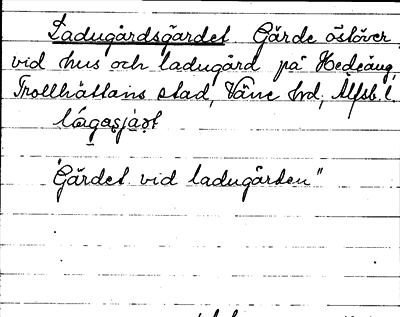 Ladugårdsgärdet Gärde öster över
vid hus och ladugård på Hedeäng,
Trollhättans stad, Väne hd, Älfsb. l.
lágaşjäṣt
"Gärdet vid ladugården"